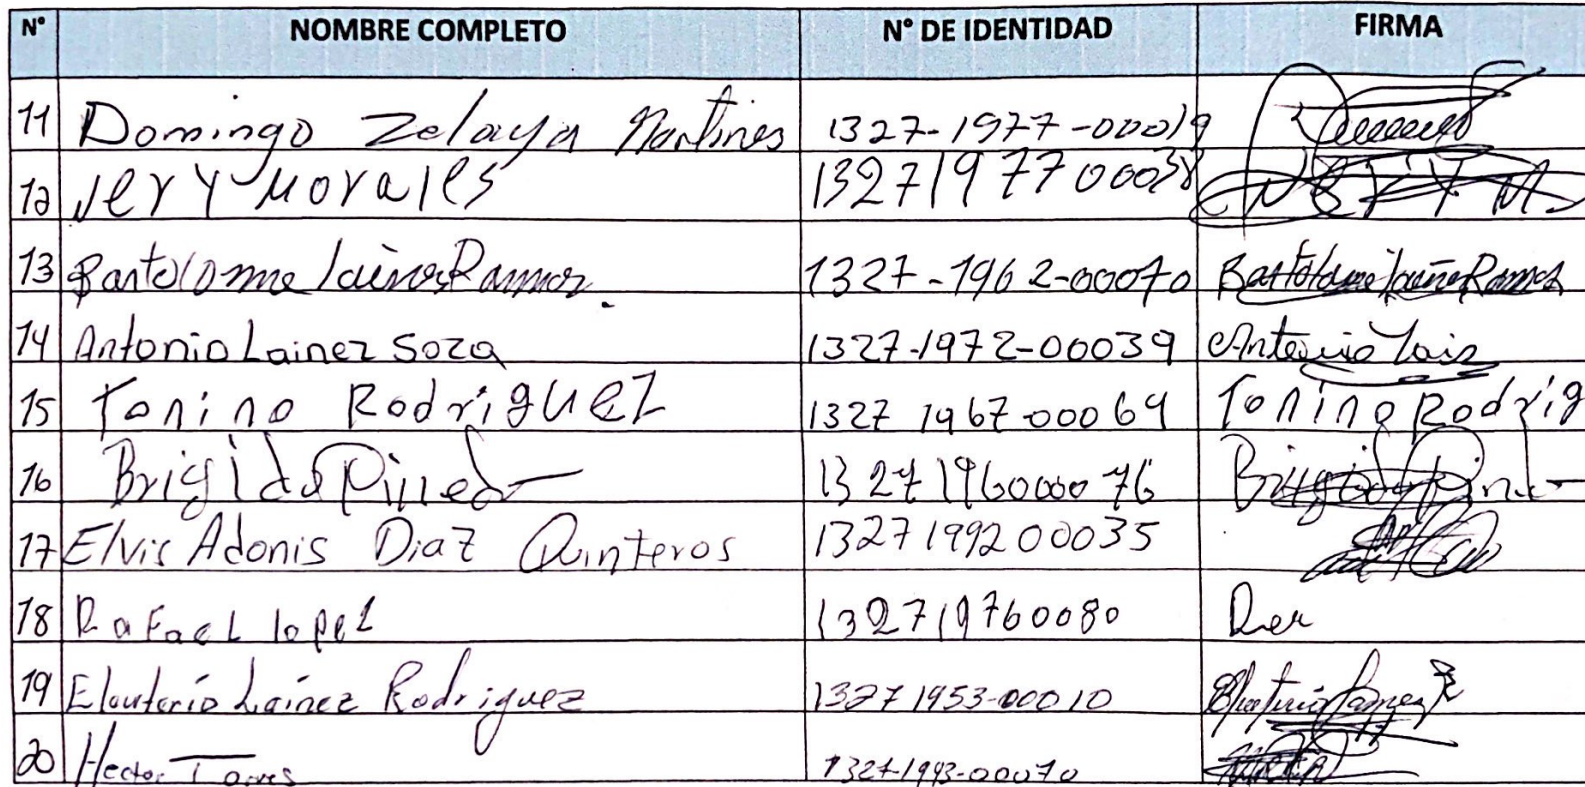 N° NOMBRE COMPLETO N° DE IDENTIDAD FIRMA
11 Domingo Zelaya Martines 1327-1977-00019
12 Jery Morales 1327197700038
13 Bartolome Lainez Ramos. 1327-1962-00070 Bartolome Laines Ramos
14 Antonio Lainez Soza 1327-1972-00039 Antonio Lais
15 Tonino Rodriguez 1327 1967-00069 Tonino Rodrig
16 Brigido Pineda 1327196000076
17 Elvis Adonis Diaz Quinteros 1327199200035
18 Rafael lopez 132719760080
19 Elauterio Lainez Rodriguez 13271953-00010
20 Hector Torres 1327-1993-00070